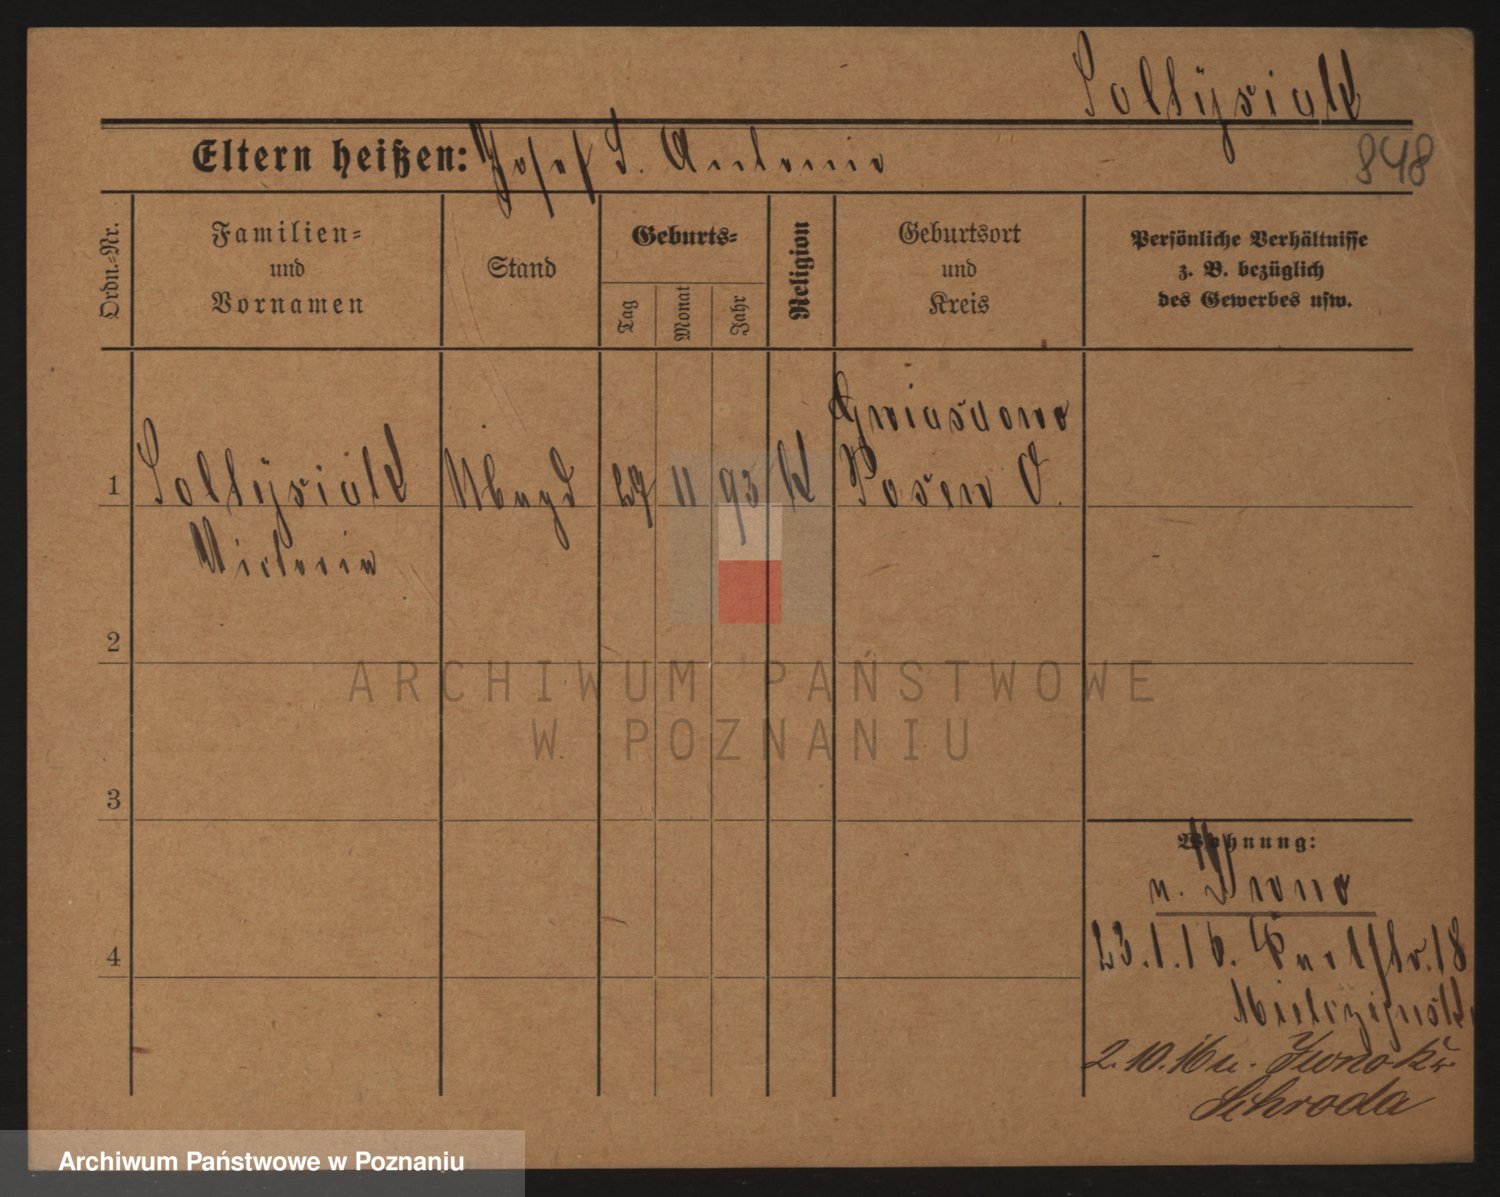 Soltysiak
Eltern heißen: Josef S. Antonie
848
Ordn.=Nr.
Familien=
und
Vornamen
Stand
Geburts=
Tag
Monat
Jahr
Religion
Geburtsort
und
Kreis
Persönliche Verhältnisse
z. B. bezüglich
des Gewerbes usw.
Gwiasdowo
1 Soltysiak Mbegd 27 11 93 K Posen O.
Victoria
2
3
4
Wohnung:
n. Iwno
23.1.16. str. 18
2.10.16 n. Iwno Kr
Schroda
ARCHIWUM PAŃSTWOWE
W POZNANIU
Archiwum Państwowe w Poznaniu